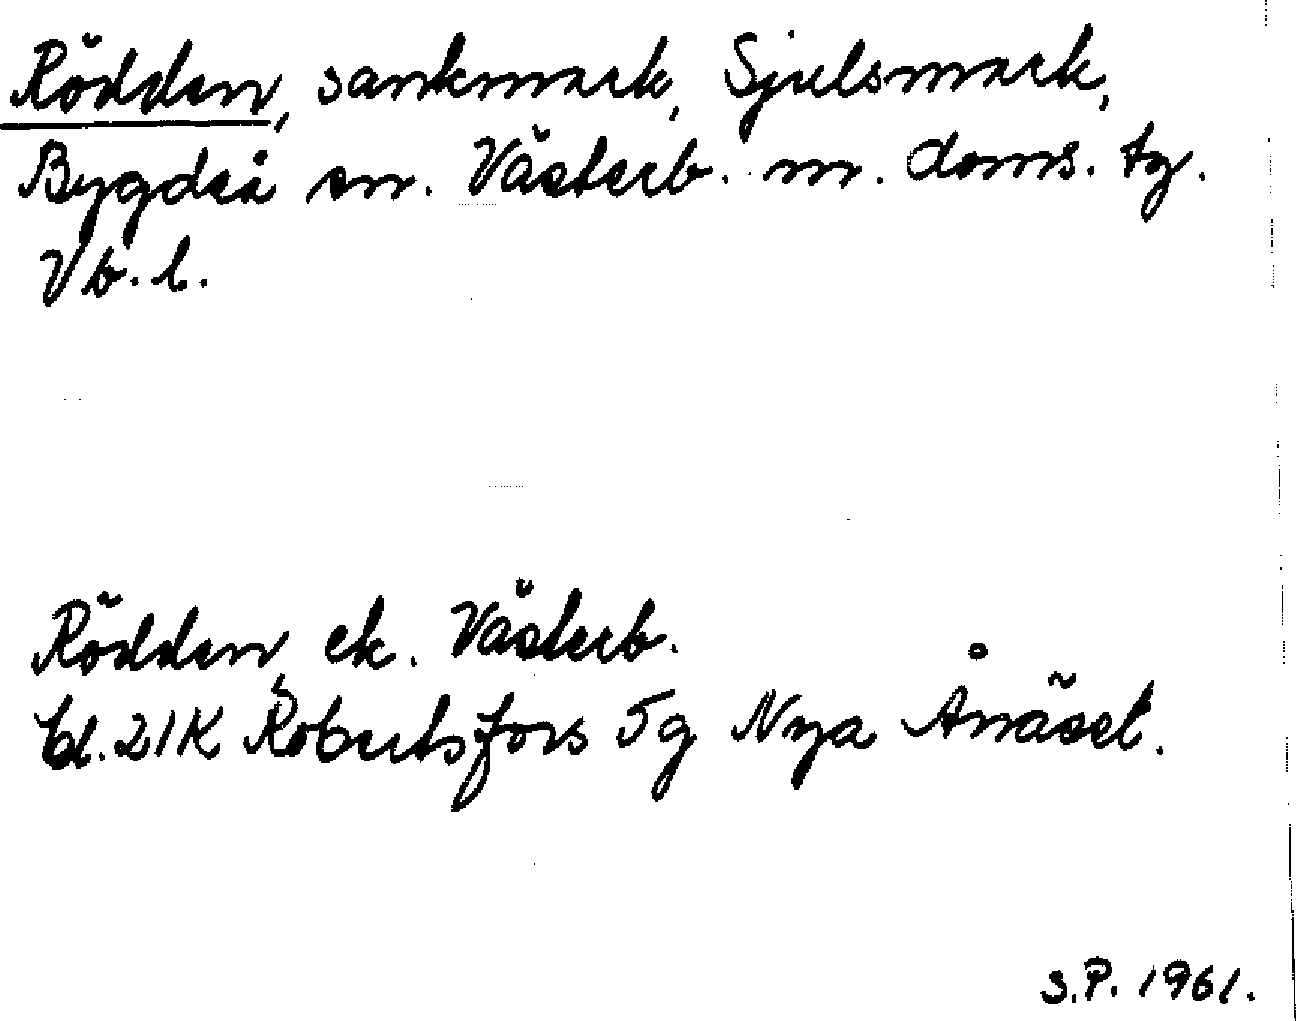 Rödden, sankmark, Sjulsmark,
Bygdeå sn. Västerb. m. doms. tg.
Vb. l.
Rödden, ek. Västerb.
bl. 21K Robertsfors 5g Nya Ånäset.
S.P. 1961.